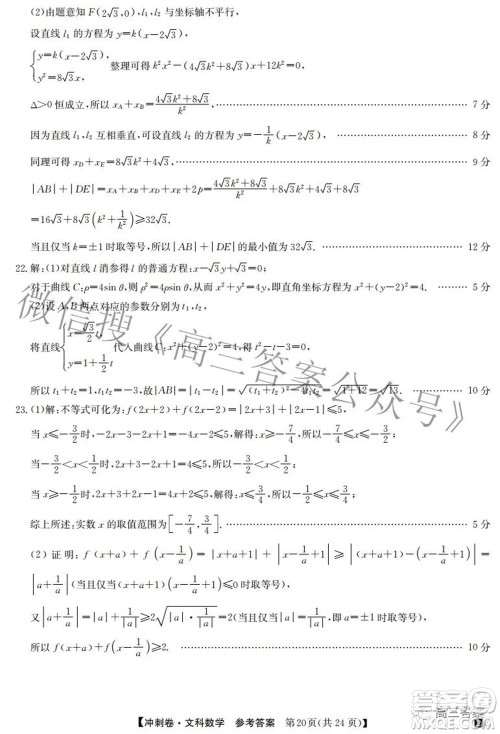 (2)由题意知F(2√3,0),l₁,l₂与坐标轴不平行,
设直线l₁的方程为y=k(x-2√3),
{y=k(x-2√3), y²=8√3x, 整理可得k²x²-(4√3k²+8√3)x+12k²=0,
Δ>0恒成立,所以x_A+x_B=(4√3k²+8√3)/k². 7分
因为直线l₁,l₂互相垂直,可设直线l₂的方程为y=-1/k(x-2√3), 8分
同理可得x_D+x_E=8√3k²+4√3, 9分
|AB|+|DE|=x_A+x_B+x_D+x_E+2p=(4√3k²+8√3)/k²+8√3k²+
=16√3+8√3(k²+1/k²)≥32√3.
当且仅当k=±1时取等号,所以|AB|+|DE|的最小值为32√3. 12分
22.解:(1)对直线l消参得l的普通方程:x-√3y+√3=0;
对于曲线C:ρ=4sinθ,即ρ²=4ρsinθ,所以直角坐标方程为x²+y²=4y,即x²+(y-2)²=4. 5分
(2)设A,B两点对应的参数分别为t₁,t₂,
将直线 代入曲线C:x²+(y-2)²=4,
所以t₁+t₂=1,t₁t₂=-3,故|AB|=|t₁-t₂|=√((t₁+t₂)²-4t₁t₂)=√(1+12)=√13. 10分
23.(1)解:不等式可化为:f(2x+2)+f(2x)=|2x+3|+|2x-1|≤5;
当x≤-3/2时,-2x-3-2x+1≤5,x≥-7/4,所以-7/4≤x≤-3/2;
当-3/2<x<1/2时,2x+3-2x+1=4≤5,所以-3/2<x<1/2;
当x≥1/2时,2x+3+2x-1≤5,x≤3/4,所以1/2≤x≤3/4;
综上所述:实数x的取值范围为[-7/4,3/4]. 5分
(2)证明:f(x+a)+f(x-1/a)=|x+a+1|+|x-1/a+1|≥|(x+a+1)-(x-1/a+1)|=
|a+1/a|(当且仅当(x+a+1)(x-1/a+1)≤0时取等号),
又|a+1/a|=|a|+|1/a|≥2√(|a|·|1/a|)=2(当且仅当|a|=|1/a|,即a=±1时取等号),
所以f(x+a)+f(x-1/a)≥2. 10分
【冲刺卷·文科数学 参考答案 第20页(共24页)】
微信搜《高三答案公众号》